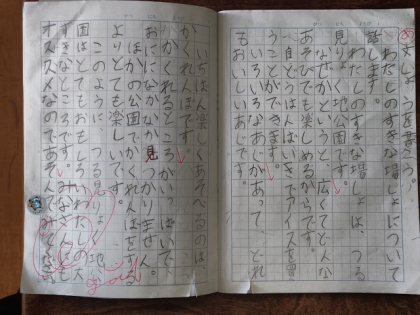 めあて しょうをまとう。
わたしのすきな場しょについて
話します。
わたしのすきな場しょは、つる
見りょく地公園です。
なぜかというと、広くてどんな
あそびでも楽しめるからです。
自どうはんばいきでアイスを買
うことができます。
いろいろなあじがあって、どれ
もおいしいあじです。
いちばん楽しくあそべるのは、
かくれんぼです。
かくれるところがいっぱいで、
おにになかなか見つかりません。
ほかの公園でかくれんぼをする
よりとても楽しいです。
このように、つる見りょく地公
園はとてもおもしろいわたしの大
すきなところです。みなさんにも
オススメなのであそんでみてね
good